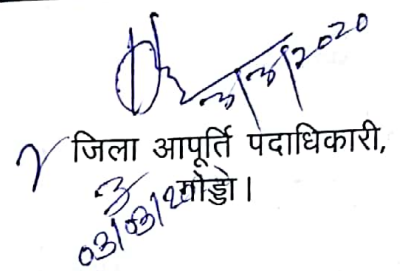 3/3/2020
जिला आपूर्ति पदाधिकारी,
गोड्डा।
03/03/20